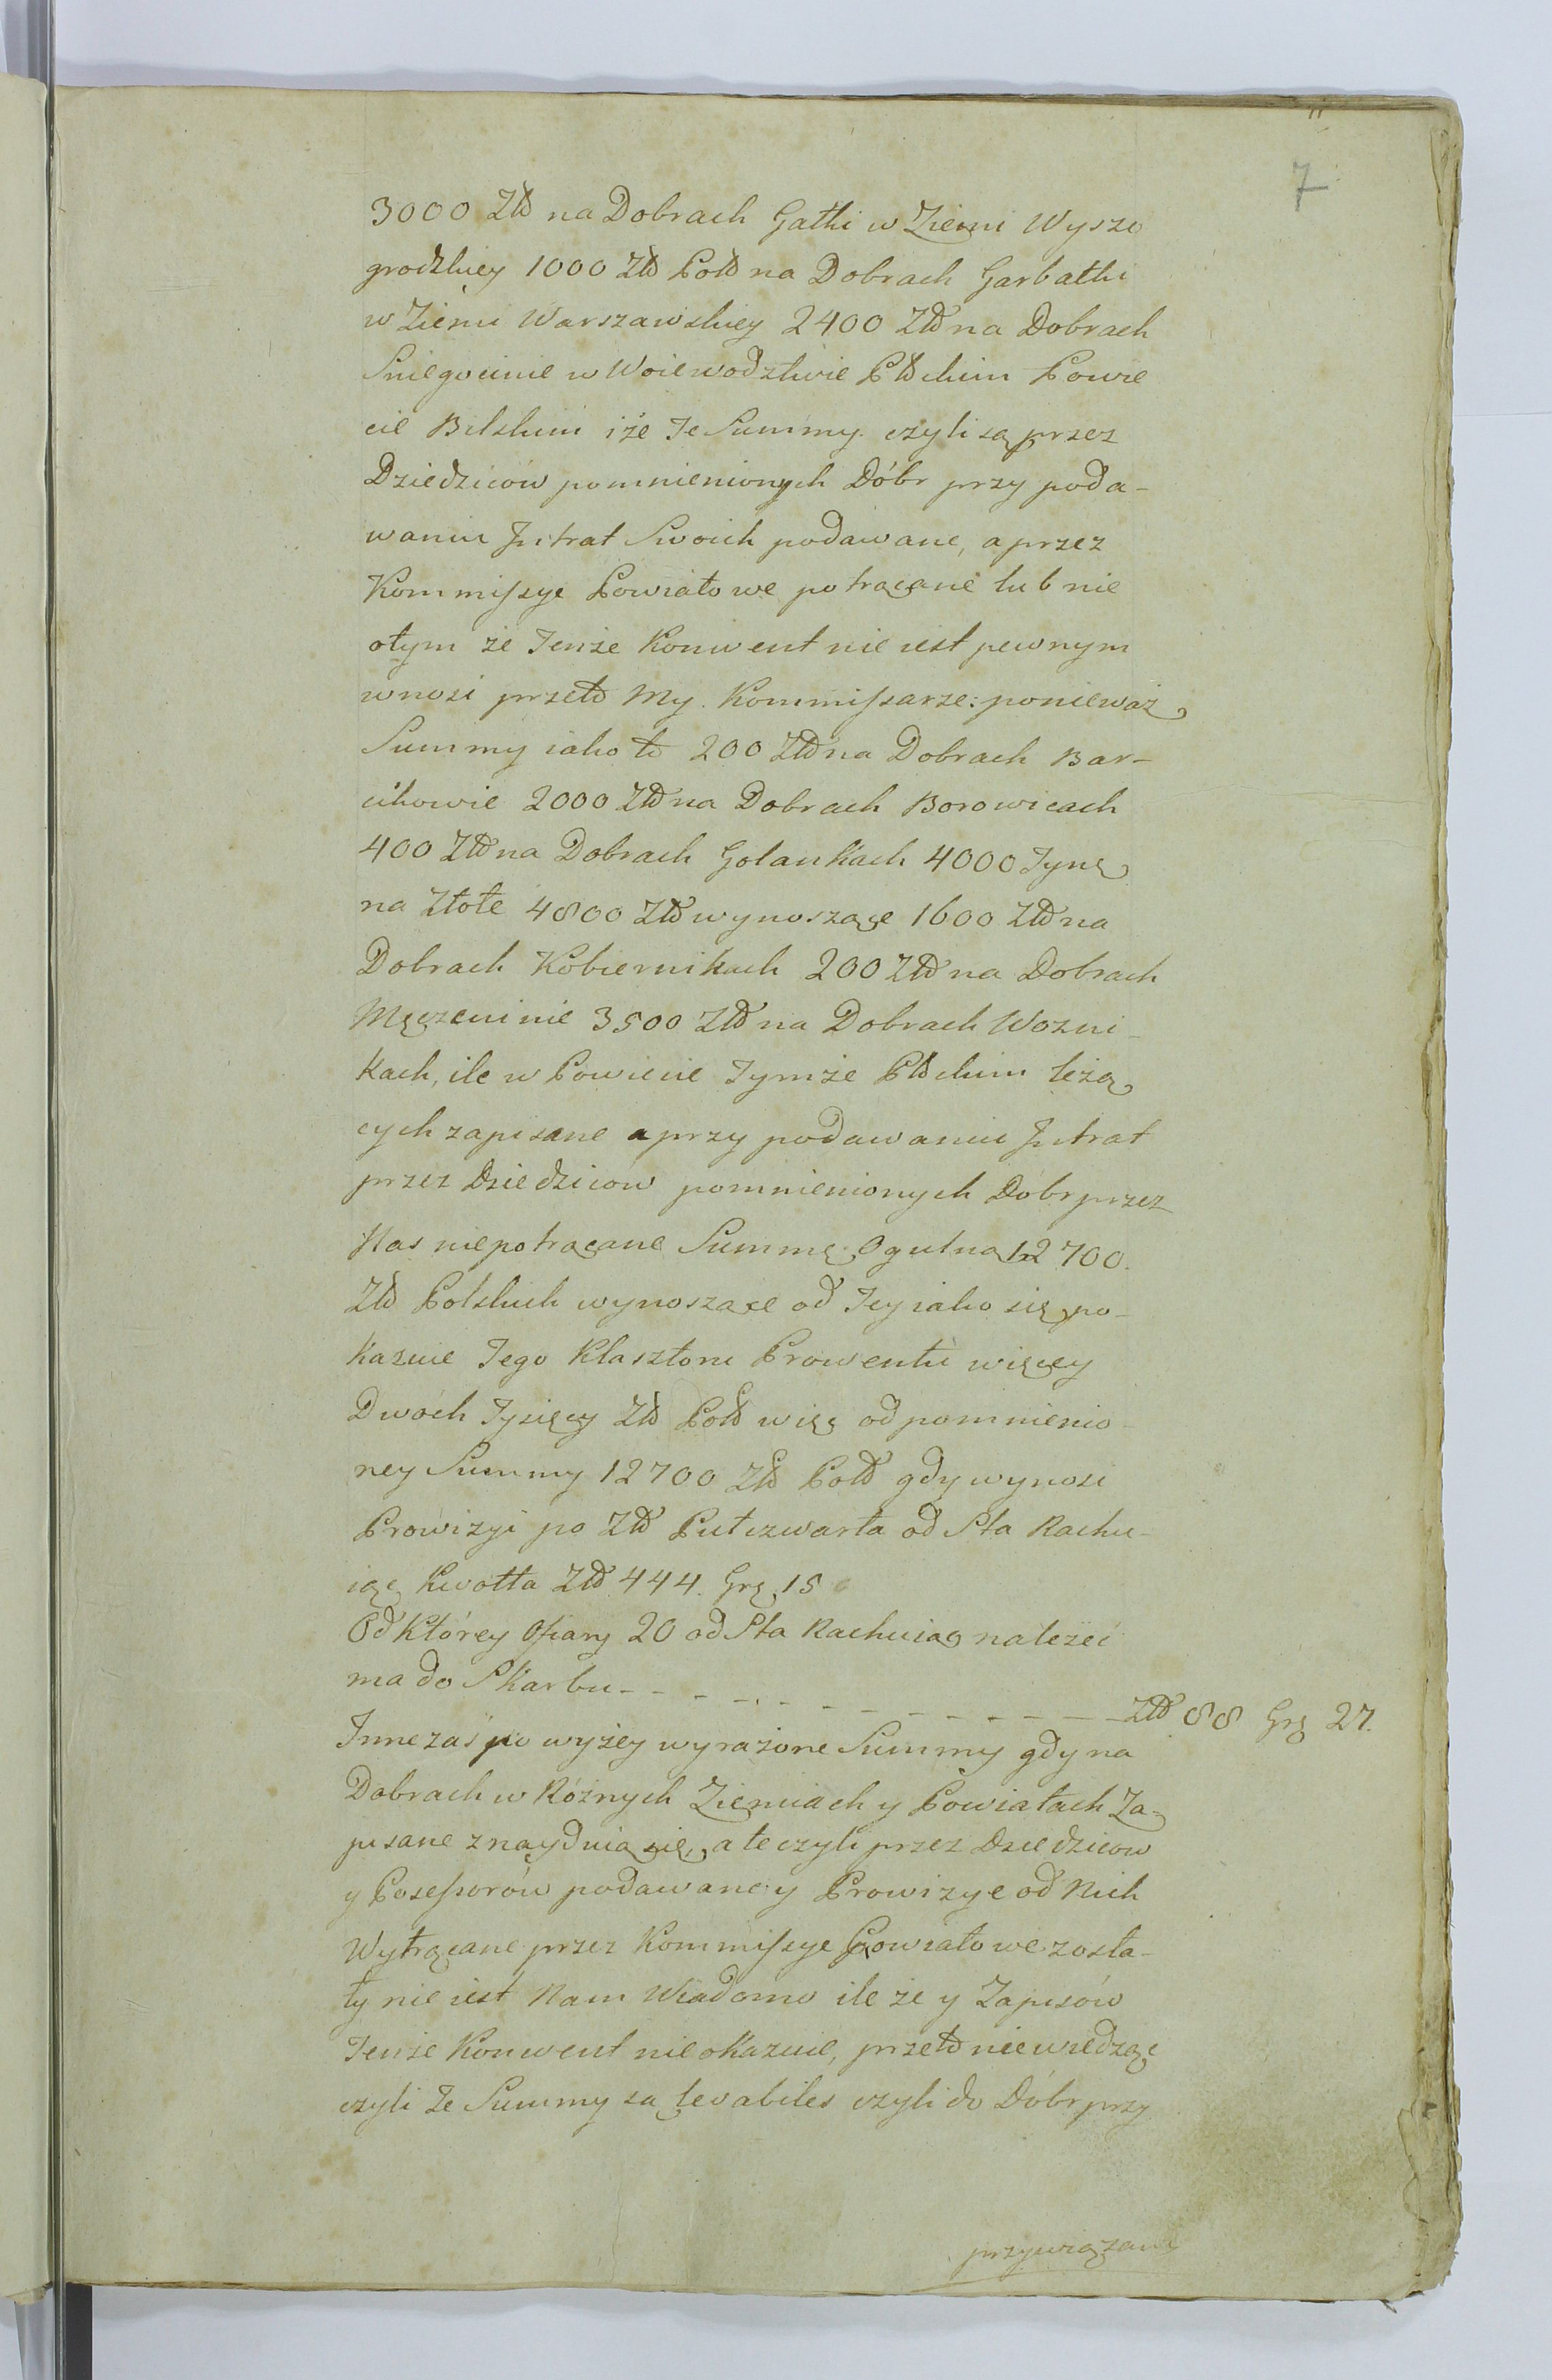 7
3000 Złł na Dobrach Gałki w Ziemi Wyszo
grodzkiey 1000 Złł Polł na Dobrach Garbatki
w Ziemi Warszawskiey 2400 Złł na Dobrach
Sniegocinie w Woiewodztwie Płłckim Powie
cie Bilskim iże Te Summy czyli są przez
Dziedziców pomnienionych Dóbr przy poda-
waniu Jntrat Swoich podawane, a przez
Kommiſsye Powiatowe potrącane lub nie
otym że Tenże Konwent nie iest pewnym
wnosi przeto My Kommiſsarze: ponieważ
Summy iako to 200 Złł na Dobrach Bar-
cikowie 2000 Złł na Dobrach Borowicach
400 Złł na Dobrach Golankach 4000 Tynf
na Złote 4800 Złł wynoszące 1600 Złł na
Dobrach Kobiernikach 200 Złł na Dobrach
Męczeninie 3500 Złł na Dobrach Wozni-
kach, ile w Powiecie Tymże Płłckim leżą
cych zapisane a przy podawaniu Jntrat
przez Dziedziców pomnienionych Dóbr przez
Nas niepotrącane Summę Ogulną 12700.
Złł Polskich wynoszące od Tey iako się po-
kazuie Tego Klasztoru Prowentu więcey
Dwóch Tysięcy Złł Polł więc od pomnienio
ney Summy 12700 Złł Polł gdy wynosi
Prowizyi po Złł Putczwarta od Sta Rachu-
iąc Kwotta Złł 444. Grę 15
Od Którey Ofiary 20 od Sta Rachuiąc należeć
ma do Skarbu - - - - - - - - - - - - Złł 88 Grę 27.
Jnne zaś po wyżey wyrażone Summy gdy na
Dobrach w Różnych Ziemiach y Powiatach Za-
pisane znayduią się, a te czyli przez Dziedzicow
y Poseſsorów podawane y Prowizye od Nich
Wytrącane przez Kommiſsye Powiatowe zosta-
ły nie iest Nam Wiadomo ile że y Zapisów
Tenże Konwent nie okazuie, przeto niewiedząc
czyli Te Summy są levabiles czyli do Dóbr przy
przywiązane